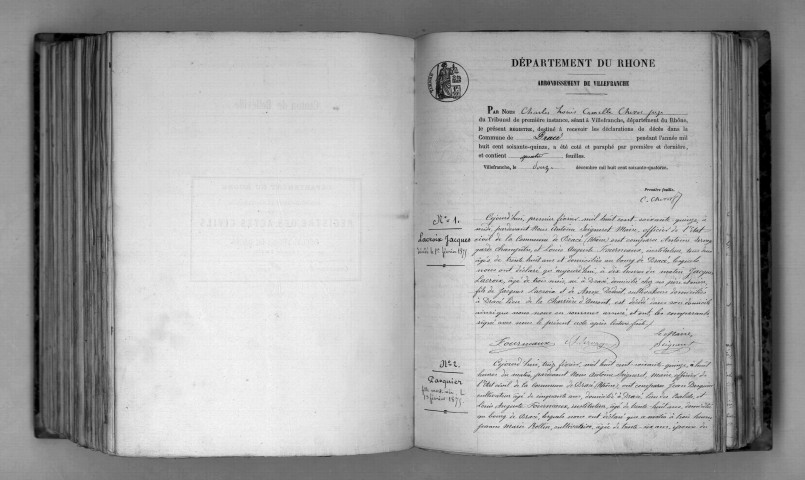 DÉPARTEMENT DU RHONE
ARRONDISSEMENT DE VILLEFRANCHE
PAR NOUS Charles Louis Camille Chivot juge
du Tribunal de première instance, séant à Villefranche, département du Rhône,
le présent REGISTRE, destiné à recevoir les déclarations de décès dans la
Commune de Dracé pendant l'année mil
huit cent soixante-quinze, a été coté et paraphé par première et dernière,
et contient quatre feuilles.
Villefranche, le décembre mil huit cent soixante-quatorze.
Première feuille.
N° 1.
Lacroix Jacques
décédé le 1er février 1875
Cejourd'hui, premier février, mil huit cent soixante quinze, à
midi, pardevant Nous Antoine Seignert Maire, officier de l'Etat
civil de la Commune de Dracé (Rhône) ont comparu Antoine
garde champêtre, et Louis Auguste Fourneaux, instituteur, tous deux
âgés de trente huit ans et domiciliés au bourg de Dracé, lesquels
nous ont déclaré qu'aujourd'hui, à dix heures du matin, Jacques
Lacroix, âgé de trois mois, né à Dracé, domicilié chez son père
fils de Jacques Lacroix et de cultivateurs domiciliés
à Dracé lieu de la est décédé dans son domicile
ainsi que nous nous en sommes assuré, et ont les comparants
signé avec nous le présent acte après lecture faite.
Le Maire
Fourneaux
Seignert
N° 2.
Pasquier
février 1875
Cejourd'hui, trois février, mil huit cent soixante quinze, à huit
heures du matin, pardevant Nous Antoine Seignert, Maire, officier de
l'Etat civil de la Commune de Dracé (Rhône), ont comparu Jean Pasquier
cultivateur âgé de cinquante ans, domicilié à Dracé, lieu des et
Louis Auguste Fourneaux, instituteur, âgé de trente huit ans, domicilié
au bourg de Dracé, lesquels nous ont déclaré que ce matin à trois heures
Jeanne Marie cultivatrice, âgée de trente six ans, épouse de